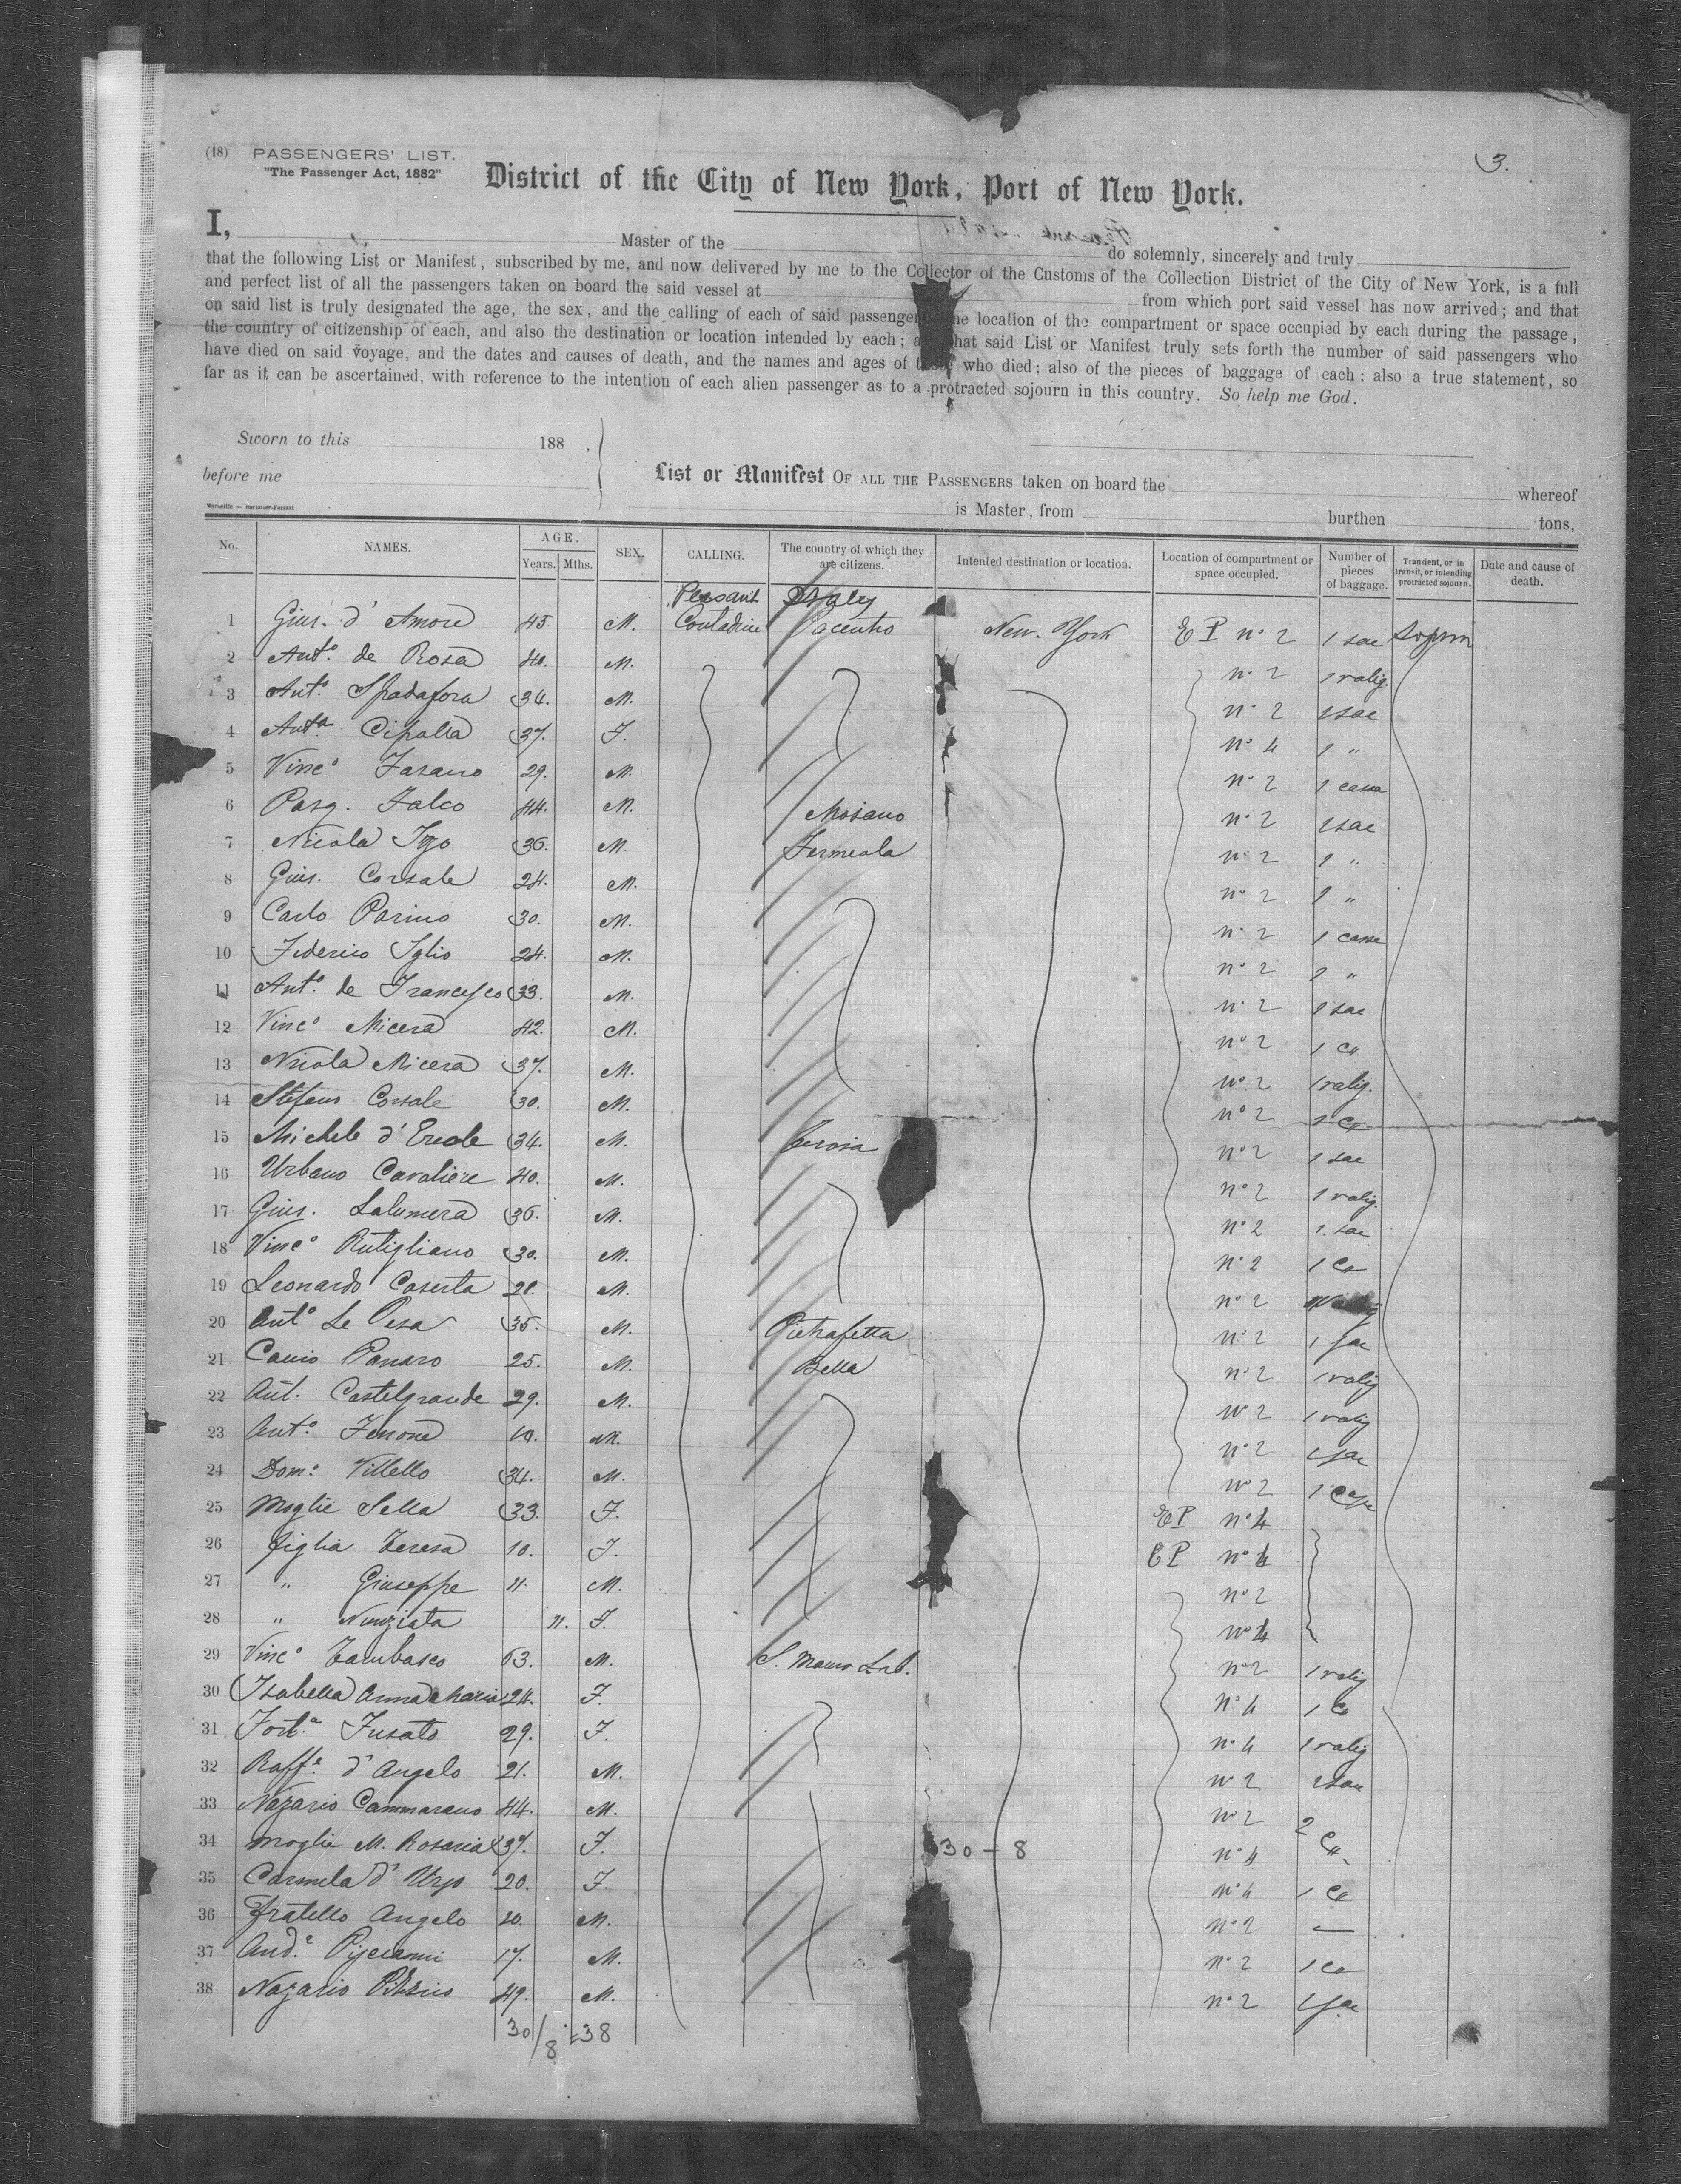 3.
(18) PASSENGERS' LIST.
"The Passenger Act, 1882"
District of the City of New York, Port of New York.
I, Master of the do solemnly, sincerely and truly
that the following List or Manifest, subscribed by me, and now delivered by me to the Collector of the Customs of the Collection District of the City of New York, is a full
and perfect list of all the passengers taken on board the said vessel at from which port said vessel has now arrived; and that
on said list is truly designated the age, the sex, and the calling of each of said passenger he location of the compartment or space occupied by each during the passage,
the country of citizenship of each, and also the destination or location intended by each; a hat said List or Manifest truly sets forth the number of said passengers who
have died on said voyage, and the dates and causes of death, and the names and ages of those who died; also of the pieces of baggage of each: also a true statement, so
far as it can be ascertained, with reference to the intention of each alien passenger as to a protracted sojourn in this country. So help me God.
Sworn to this 188 ,
before me
List or Manifest OF ALL THE PASSENGERS taken on board the whereof
is Master, from burthen tons,
No. NAMES. AGE. Years. Mths. SEX. CALLING. The country of which they are citizens. Intented destination or location. Location of compartment or space occupied. Number of pieces of baggage. Transient, or in transit, or intending protracted sojourn. Date and cause of death.
Peasant Italy
1 Gius. d' Amore 45. M. Contadine Pacentro New-York E P n° 2 1 sac
2 Ant.° de Rosa 40. M. n° 2 1 valig.
3 Ant.° Spadafora 34. M. n° 2 1 sac
4 Ant.a Cipolla 37. F. n° 4 1 "
5 Vinc° Fasano 29. M. n° 2 1 cassa
6 Pasq. Falco 44. M. n° 2 1 sac
7 Nicola Izzo 36. M. n° 2 1 "
8 Gius. Corsale 24. M. n° 2 1 "
9 Carlo Parino 30. M. n° 2 1 casse
10 Federico Iglio 24. M. n° 2 1 "
11 Ant.° de Francesco 33. M. n° 2 1 sac
12 Vinc° Micera 42. M. n° 2 1 Ca
13 Nicola Micera 37. M. n° 2 1 valig.
14 Stefano Corsale 30. M. n° 2 1 Ca
15 Michele d'Ercole 34. M. n° 2 1 sac
16 Urbano Cavaliere 40. M. n° 2 1 valig.
17 Gius. Lalumera 36. M. n° 2 1 sac
18 Vinc° Rutigliano 30. M. n° 2 1 Ca
19 Leonardo Caserta 28. M. n° 2
20 Ant° Le Pesa 35. M. Pietrafetta n° 2 1 sac
21 Canio Panaro 25. M. Bella n° 2 1 valig
22 Ant. Castelgrande 29. M. n° 2 1 valig
23 Ant.° Ferrone 19. M. n° 2 1 sac
24 Dom.° Vitello 34. M. n° 2 1 Casse
25 Moglie Sella 33. F. E P n° 4
26 figlia Teresa 10. F. E P n° 4
27 " Giuseppe 11. M. n° 2
28 " Nunziata 11. F. n° 4
29 Vinc° Tambasco 63. M. S. Mauro n° 2 1 valig
30 Isabella Anna Maria 24. F. n° 4 1 Ca
31 Fort.a Fusato 29. F. n° 4 1 valig
32 Raff.e d' Angelo 21. M. n° 2 1 sac
33 Nazario Cammarano 44. M. n° 2 2 Ca
34 moglie M. Rosaria 37. F. 30 - 8 n° 4
35 Carmela d' Urso 20. F. n° 4 1 Ca
36 fratello Angelo 10. M. n° 2 —
37 And.a 17. M. n° 2 1 Ca
38 Nazario 49. M. n° 2 1 sac
30/8 = 38